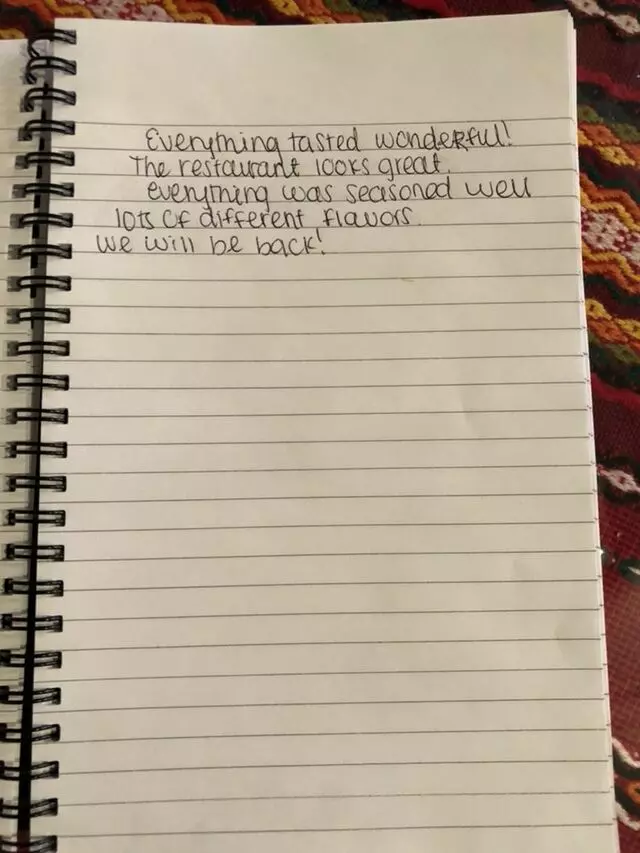 Everything tasted wonderful!
The restaurant looks great.
everything was seasoned well
lots of different flavors.
we will be back!